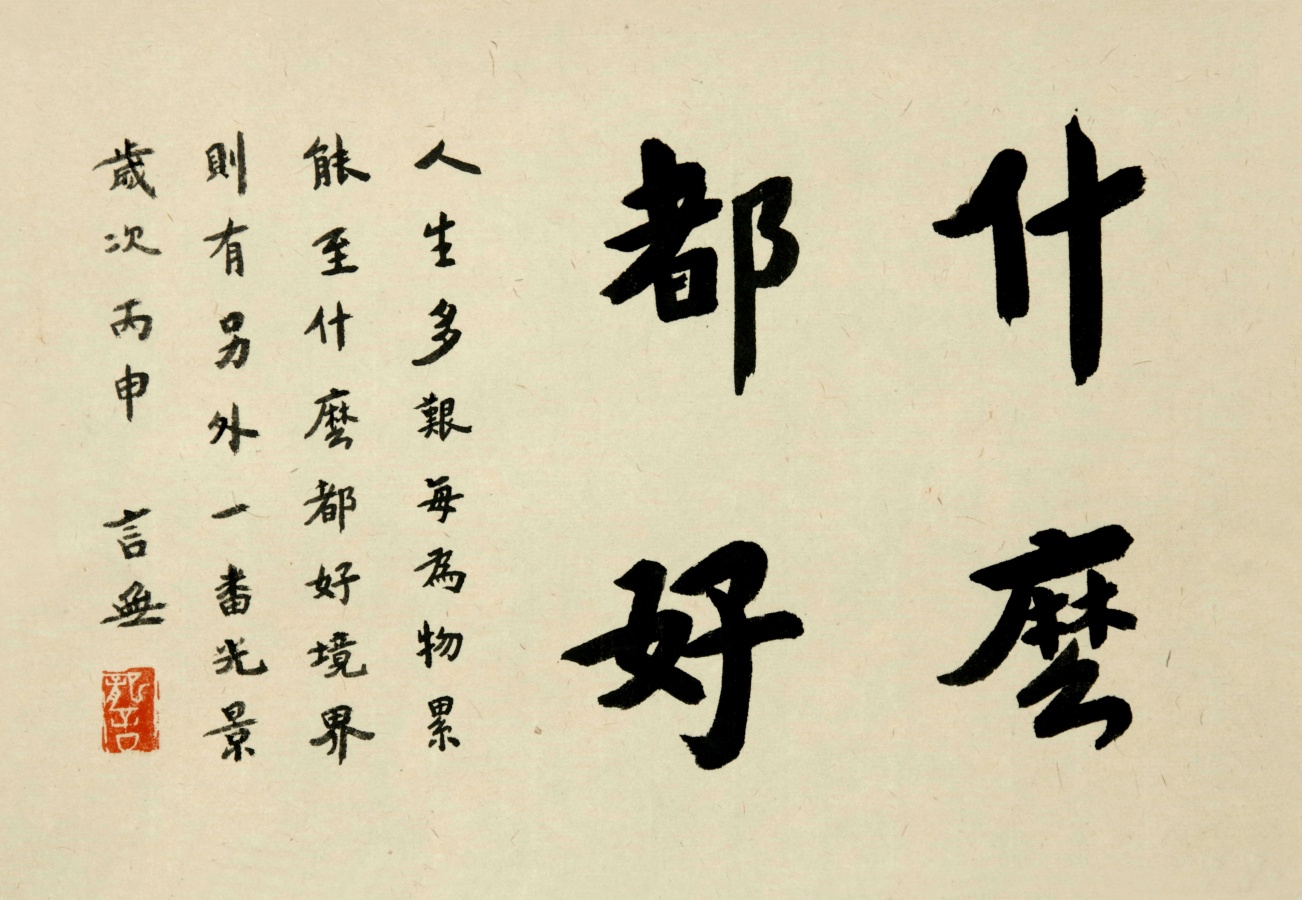 什麼
都好
人生多艱每為物累
能至什麼都好境界
則有另外一番光景
歲次丙申 言無